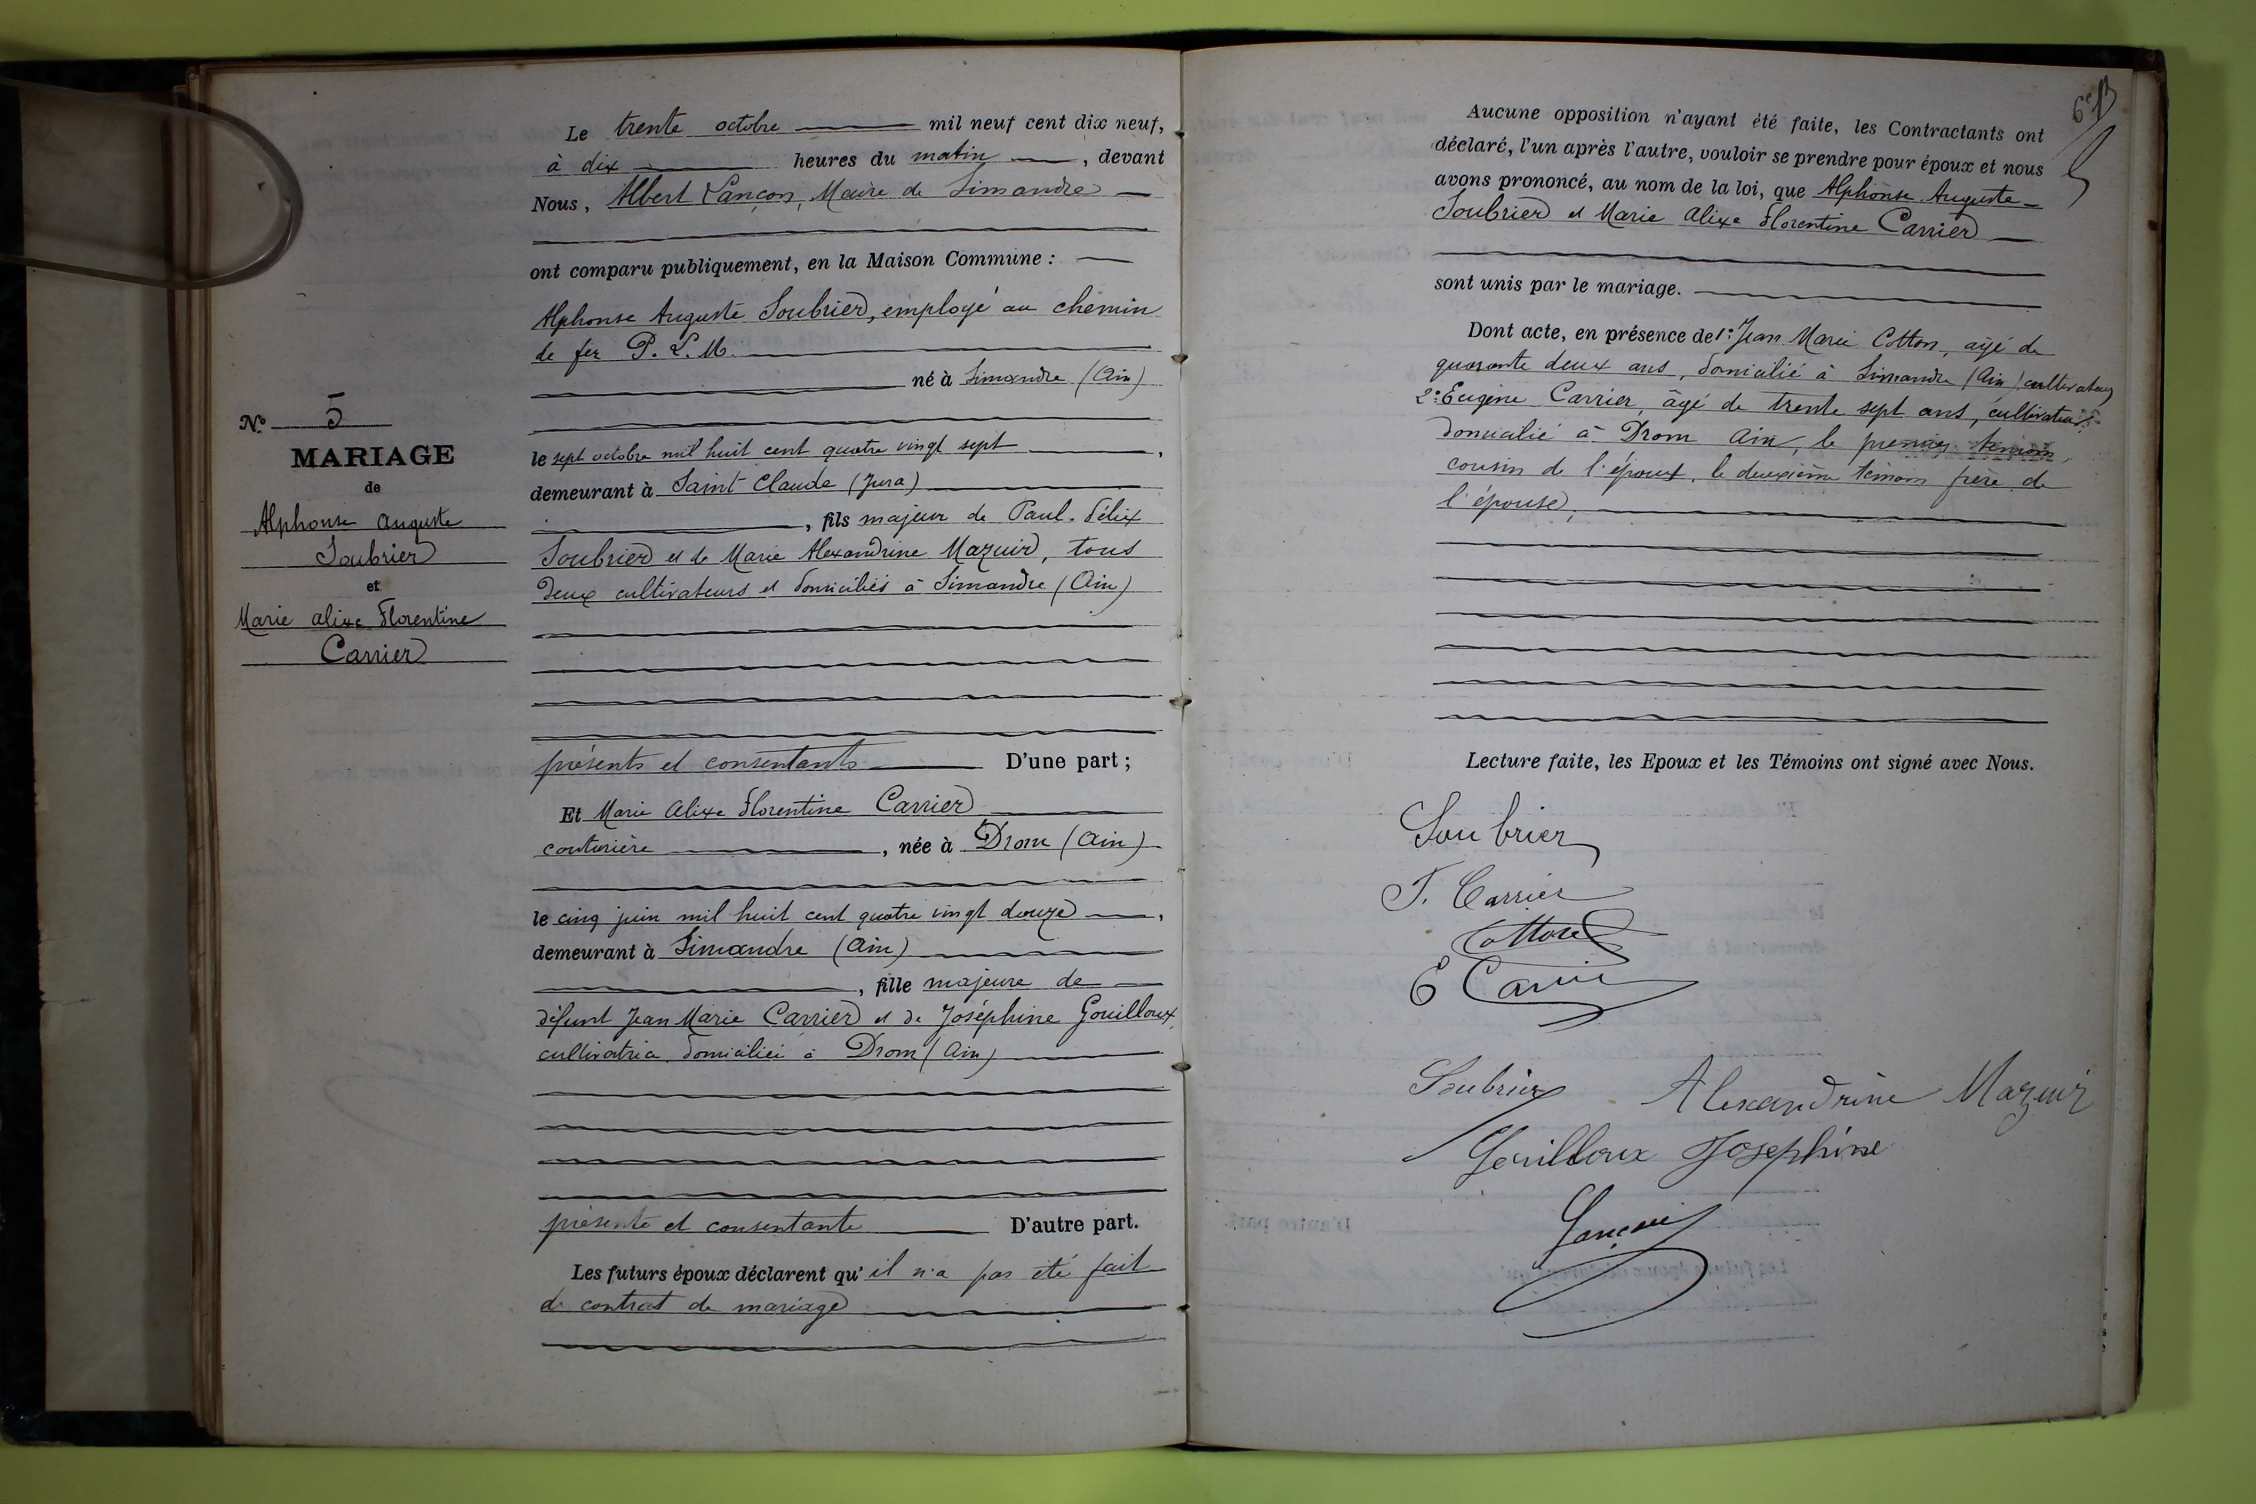 Nº 5
MARIAGE
de
Alphonse Auguste
Soubrier
et
Marie Alixe Florentine
Carrier
Le trente octobre mil neuf cent dix neuf,
à dix heures du matin, devant
Nous, Albert Lançon, Maire de Simandre
ont comparu publiquement, en la Maison Commune :
Alphonse Auguste Soubrier, employé au chemin
de fer P. L. M.
né à Simandre (Ain)
le sept octobre mil huit cent quatre vingt sept,
demeurant à Saint Claude (Jura)
, fils majeur de Paul Félix
Soubrier et de Marie Alexandrine Mazuir, tous
deux cultivateurs et domiciliés à Simandre (Ain)
présents et consentants D'une part ;
Et Marie Alixe Florentine Carrier
couturière, née à Drom (Ain)
le cinq juin mil huit cent quatre vingt douze,
demeurant à Simandre (Ain)
, fille majeure de
défunt Jean Marie Carrier et de Joséphine Gouilloux,
cultivatrice domiciliée à Drom (Ain)
présente et consentante D'autre part.
Les futurs époux déclarent qu'il n'a pas été fait
de contrat de mariage
6e
Aucune opposition n'ayant été faite, les Contractants ont
déclaré, l'un après l'autre, vouloir se prendre pour époux et nous
avons prononcé, au nom de la loi, que Alphonse Auguste
Soubrier et Marie Alixe Florentine Carrier
sont unis par le mariage.
Dont acte, en présence de 1º Jean Marie Cotton, âgé de
quarante deux ans, domicilié à Simandre (Ain) cultivateur
2º Eugène Carrier, âgé de trente sept ans, cultivateur
domicilié à Drom Ain, le premier témoin,
cousin de l'époux, le deuxième témoin frère de
l'épouse,
Lecture faite, les Epoux et les Témoins ont signé avec Nous.
Soubrier
F. Carrier
Cotton
E Carrier
Soubrier Alexandrine Mazuir
Gouilloux Josephine
Lançon